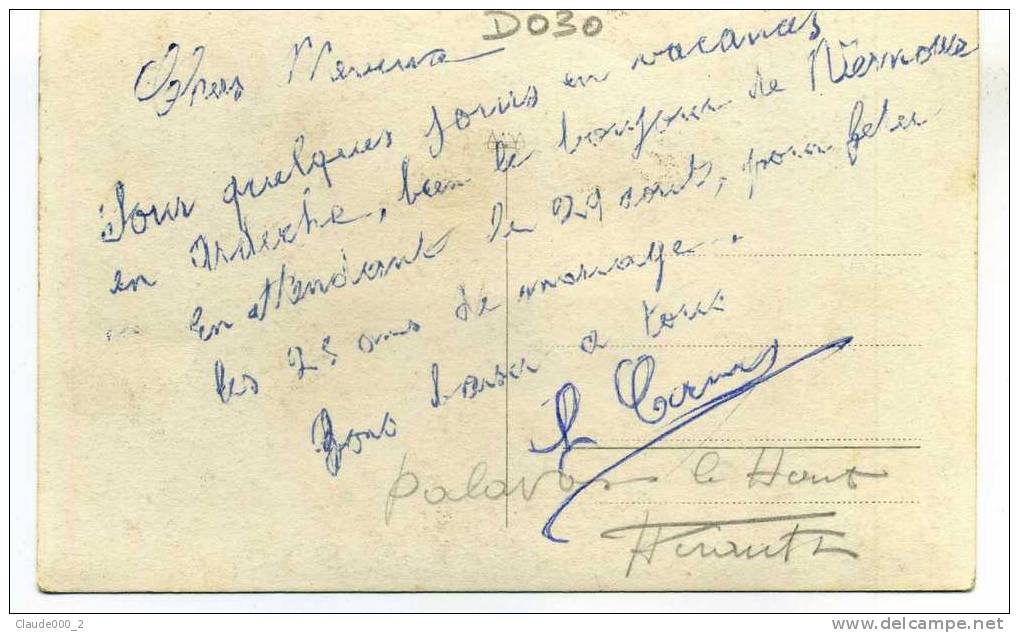 D030
Chers
Pour quelques jours en vacances
en Ardèche, bien le bonjour de
En attendant le 29 août, pour fêter
les 25 ans de mariage.
Bons baiser a tous
Palavas le
Claude000_2
www.delcampe.net